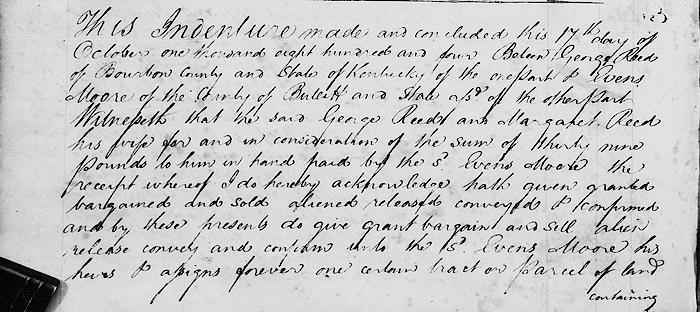 This Indenture made and concluded this 17th day of
October one thousand eight hundred and four Between George Reed
of Bourbon County and State of Kentucky of the one part & Evens
Moore of the County of Bulitt and State afsd. of the other part
Witnesseth that the said George Reed and Margaret Reed
his wife for and in consideration of the sum of thirty nine
pounds to him in hand paid by the sd. Evens Moore the
receipt whereof I do hereby acknowledge hath given granted
bargained and sold aliened released conveyed & confirmed
and by these presents do give grant bargain and sell alien
release convey and confirm unto the sd. Evens Moore his
heirs & assigns forever one certain tract or parcel of land
containing